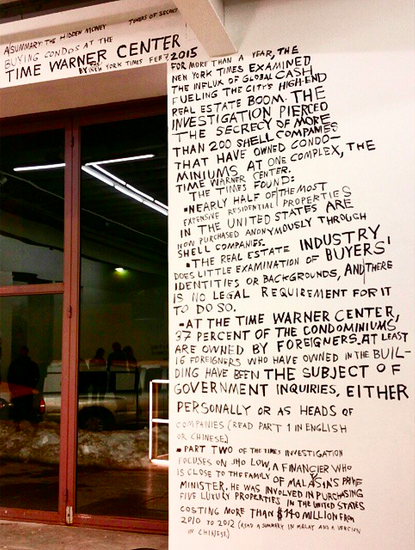 A SUMMARY: THE HIDDEN MONEY
BUYING CONDOS AT THE
TOWERS OF SECRECY
TIME WARNER CENTER
BY NEW YORK TIMES FEB 7, 2015
FOR MORE THAN A YEAR, THE
NEW YORK TIMES EXAMINED
THE INFLUX OF GLOBAL CASH
FUELING THE CITY'S HIGH-END
REAL ESTATE BOOM. THE
INVESTIGATION PIERCED
THE SECRECY OF MORE
THAN 200 SHELL COMPANIES
THAT HAVE OWNED CONDO-
MINIUMS AT ONE COMPLEX, THE
TIME WARNER CENTER.
THE TIMES FOUND:
▪NEARLY HALF OF THE MOST
EXPENSIVE RESIDENTIAL PROPERTIES
IN THE UNITED STATES ARE
NOW PURCHASED ANONYMOUSLY THROUGH
SHELL COMPANIES.
▪THE REAL ESTATE INDUSTRY
DOES LITTLE EXAMINATION OF BUYERS'
IDENTITIES OR BACKGROUNDS, AND THERE
IS NO LEGAL REQUIREMENT FOR IT
TO DO SO.
▪AT THE TIME WARNER CENTER,
37 PERCENT OF THE CONDOMINIUMS
ARE OWNED BY FOREIGNERS. AT LEAST
16 FOREIGNERS WHO HAVE OWNED IN THE BUIL-
DING HAVE BEEN THE SUBJECT OF
GOVERNMENT INQUIRIES, EITHER
PERSONALLY OR AS HEADS OF
COMPANIES (READ PART 1 IN ENGLISH
OR CHINESE)
▪PART TWO OF THE TIMES INVESTIGATION
FOCUSES ON JHO LOW, A FINANCIER WHO
IS CLOSE TO THE FAMILY OF MALAYSIA'S PRIME
MINISTER. HE WAS INVOLVED IN PURCHASING
FIVE LUXURY PROPERTIES IN THE UNITED STATES
COSTING MORE THAN $140 MILLION FROM
2010 TO 2012 (READ A SUMMARY IN MALAY AND A VERSION
IN CHINESE)